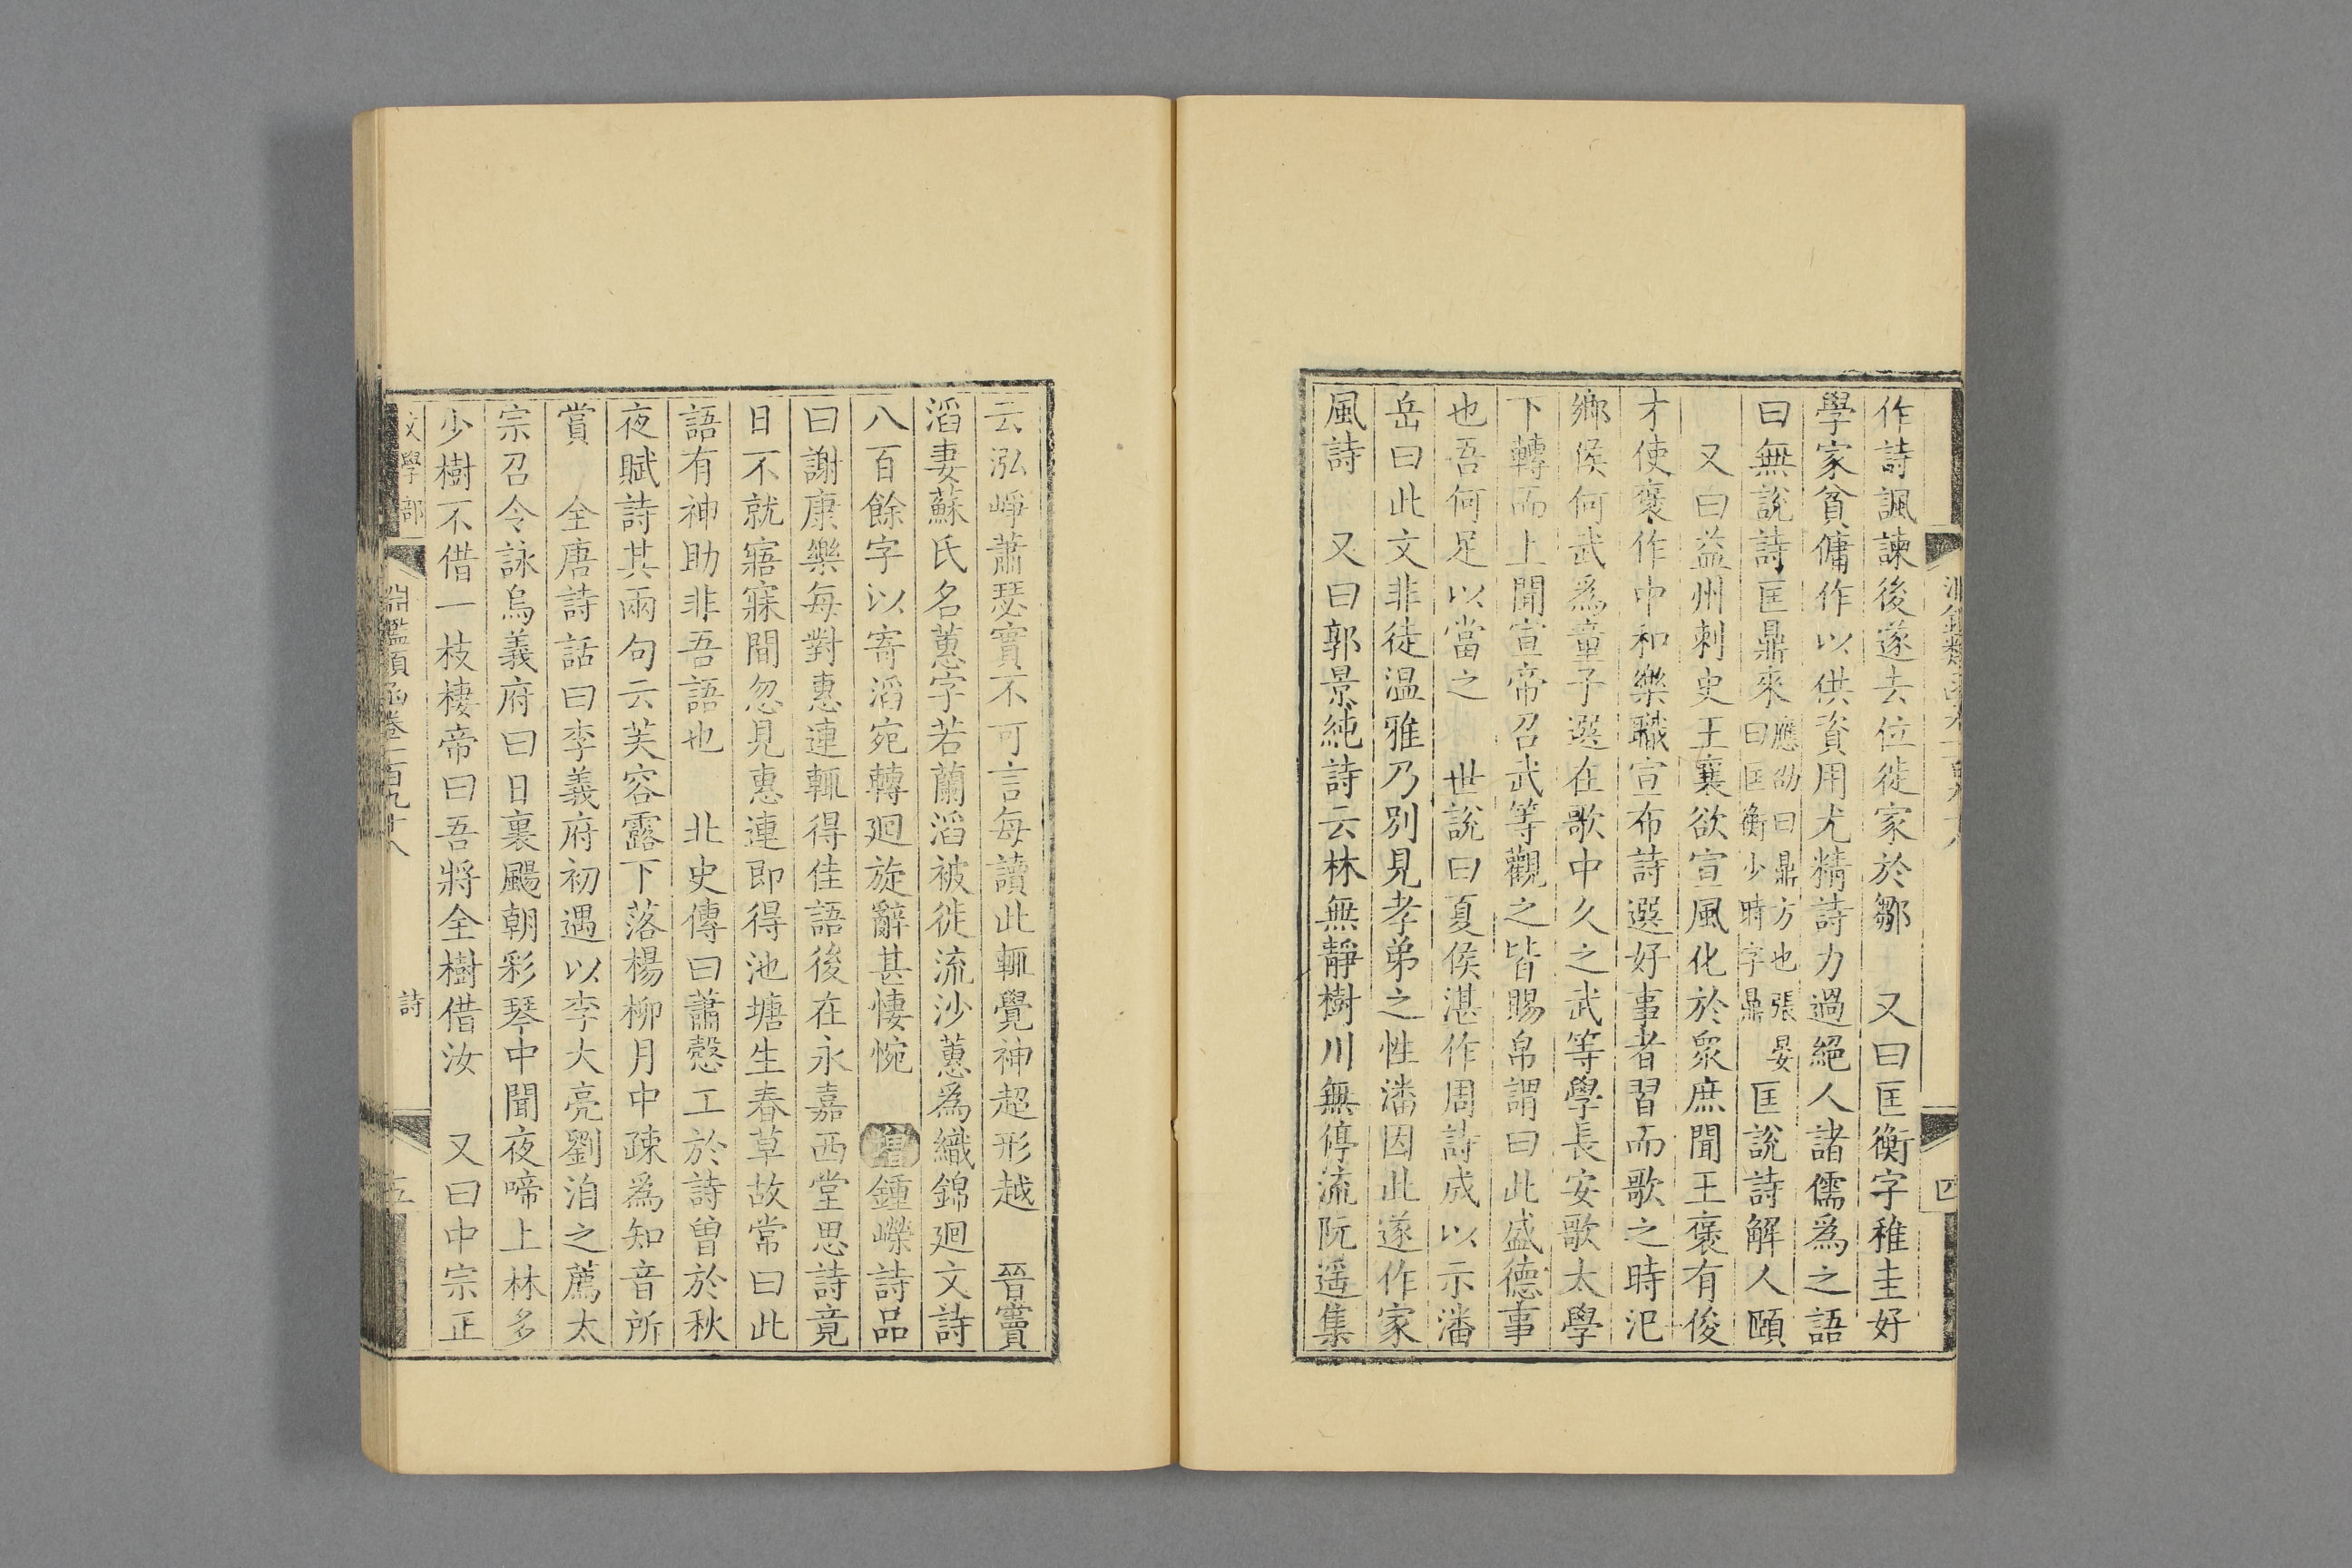 作詩諷諫後遂去位徙家於鄒　又曰匡衡字稚圭好
學家貧傭作以供資用尤精詩力過絕人諸儒爲之語
曰無說詩匡鼎來應劭曰鼎方也張晏曰匡衡少時字鼎匡說詩解人頤
又曰益州刺史王襄欲宣風化於衆庶聞王襃有俊
才使襃作中和樂職宣布詩選好事者習而歌之時汜
鄉侯何武爲童子選在歌中久之武等學長安歌太學
下轉而上聞宣帝召武等觀之皆賜帛謂曰此盛德事
也吾何足以當之　世說曰夏侯湛作周詩成以示潘
岳曰此文非徒温雅乃別見孝弟之性潘因此遂作家
風詩　又曰郭景純詩云林無靜樹川無停流阮遥集
云泓崢蕭瑟實不可言每讀此輒覺神超形越　晉竇
滔妻蘇氏名蕙字若蘭滔被徙流沙蕙爲織錦廻文詩
八百餘字以寄滔宛轉廻旋辭甚悽惋　增鍾嶸詩品
曰謝康樂每對惠連輒得佳語後在永嘉西堂思詩竟
日不就寤寐間忽見惠連即得池塘生春草故常曰此
語有神助非吾語也　北史傳曰蕭慤工於詩曾於秋
夜賦詩其兩句云芙容露下落楊柳月中疎爲知音所
賞　全唐詩話曰李義府初遇以李大亮劉洎之薦太
宗召令詠烏義府曰日裏颺朝彩琴中聞夜啼上林多
少樹不借一枝棲帝曰吾將全樹借汝　又曰中宗正
文學部　淵鑑類函卷一百九十八　詩　五
四